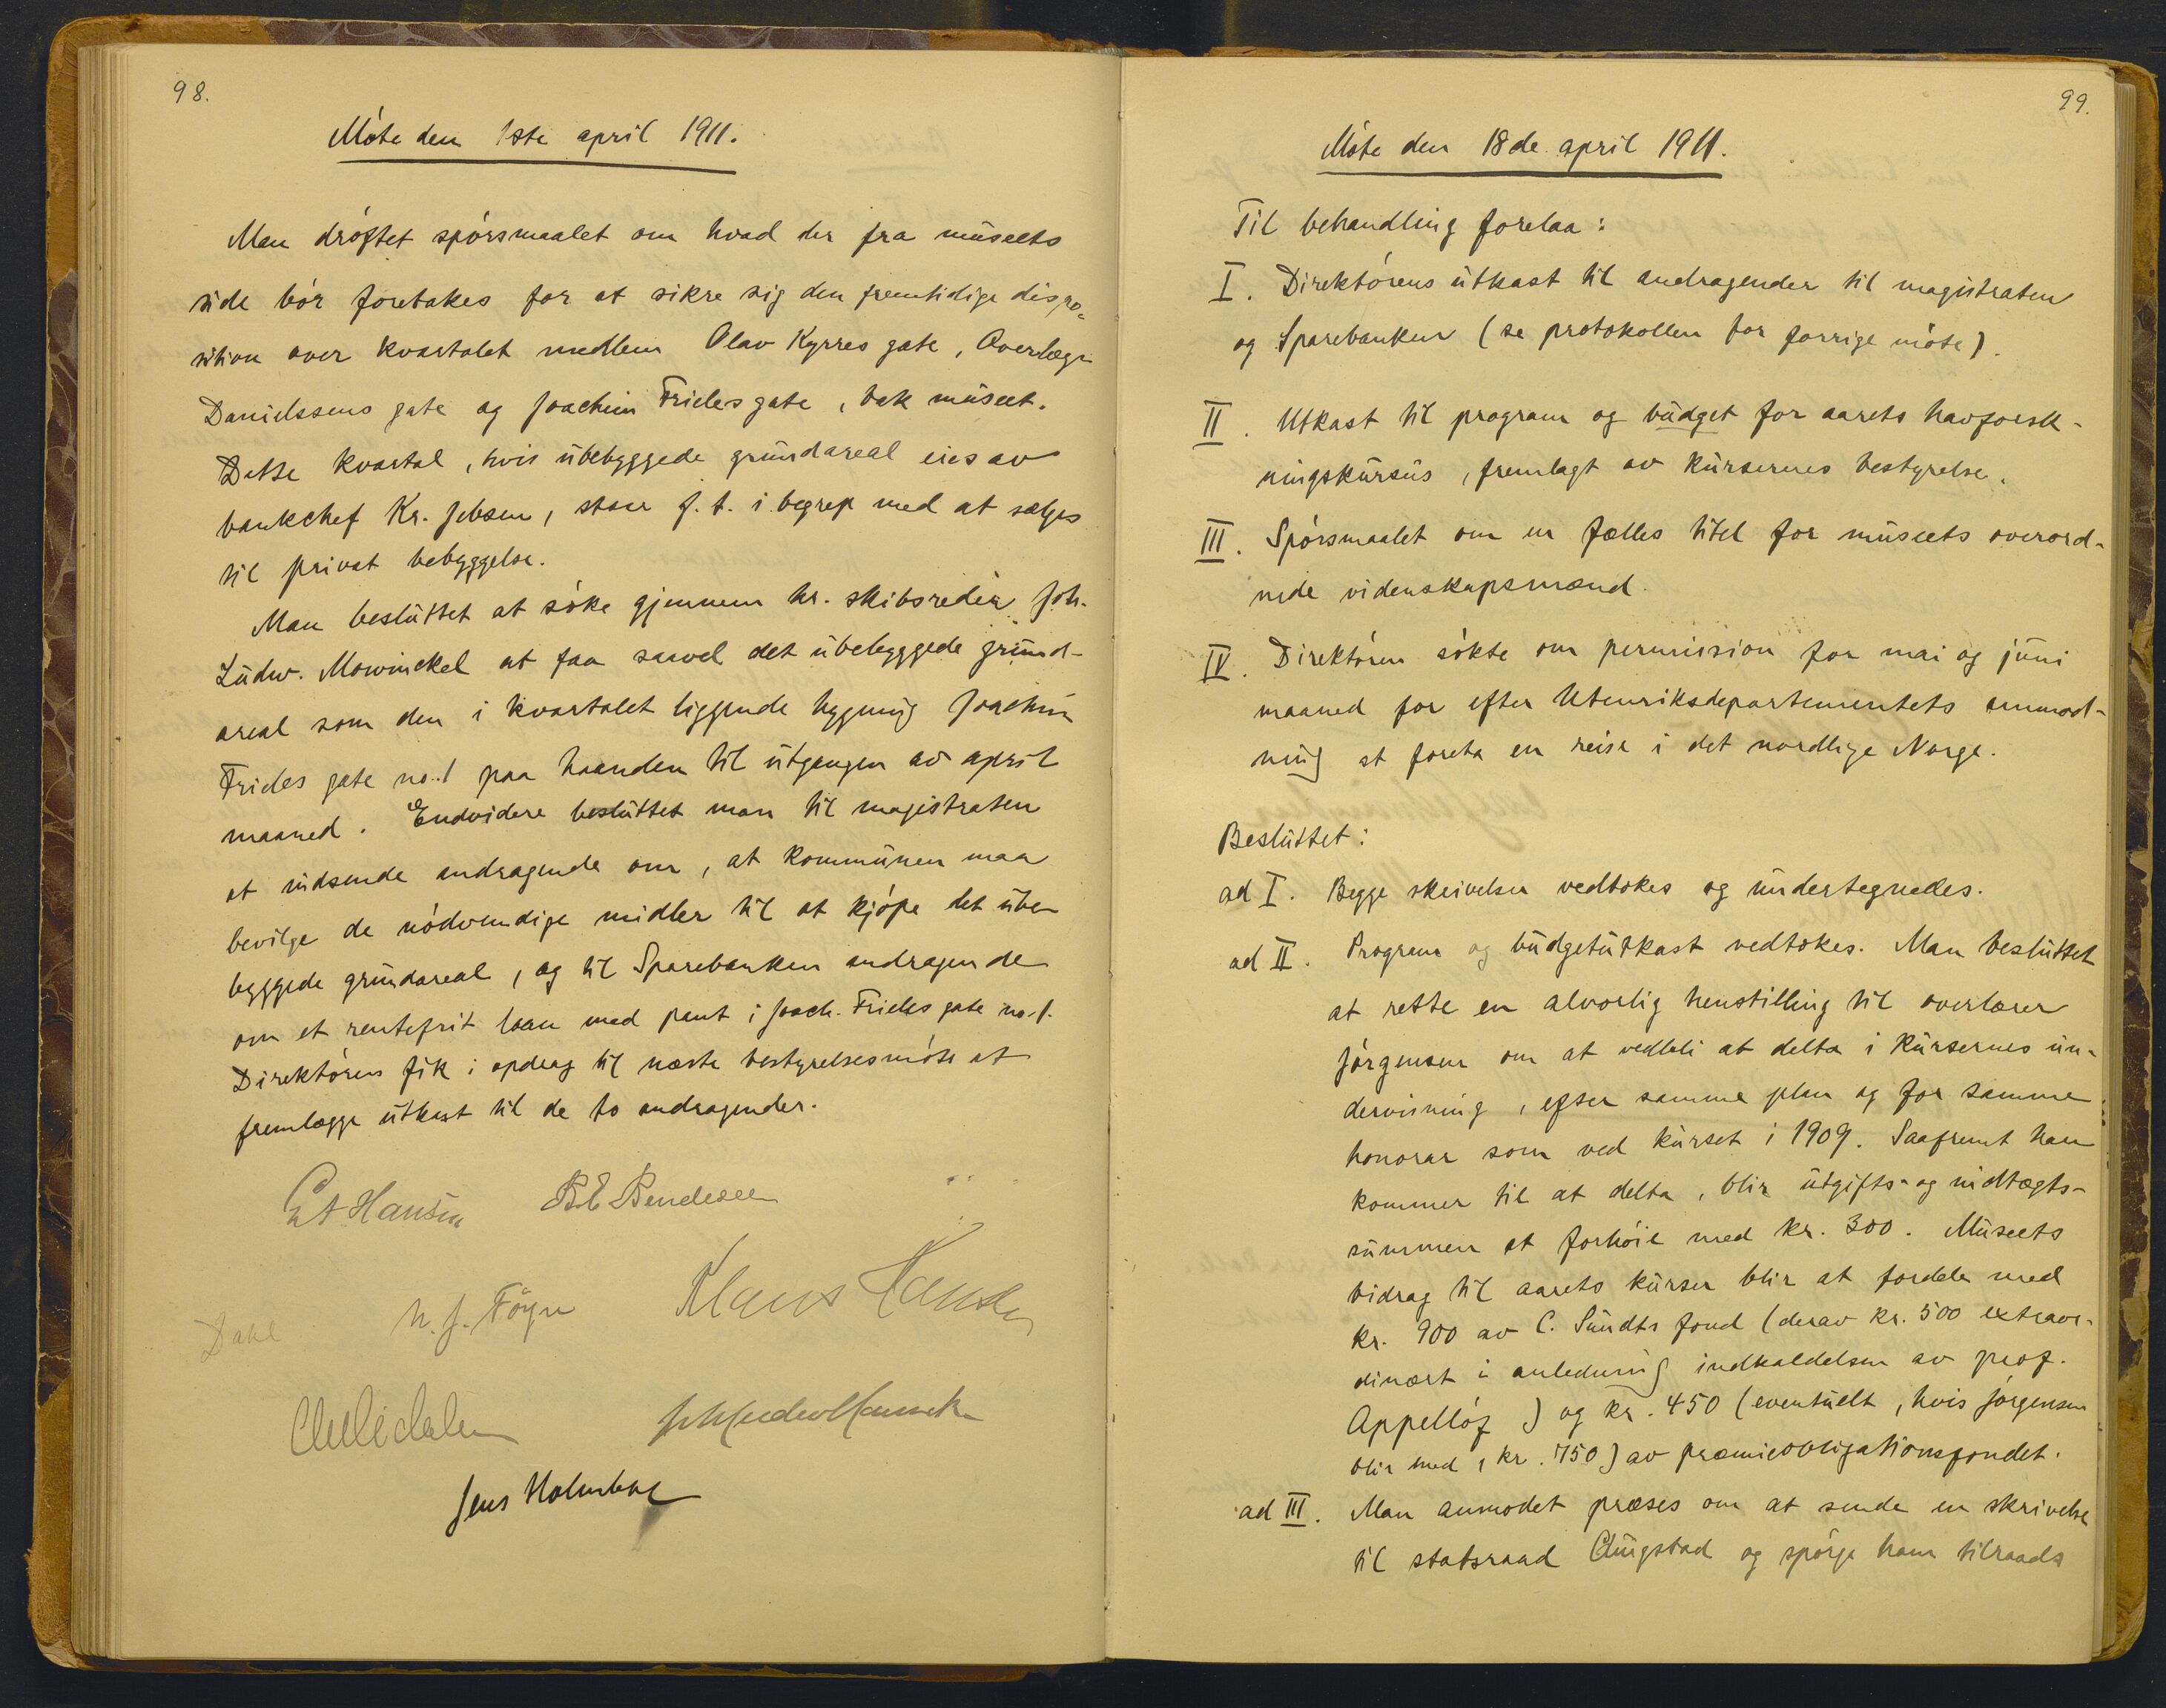 98.
Møte den 1ste april 1911.
Man drøftet spørsmaalet om hvad der fra museets
side bør foretakes for at sikre sig den fremtidige dispo-
sition over kvartalet mellem Olav Kyrres gate, Overlæge
Danielssens gate og Joachim Frieles gate, bak museet.
Dette kvartal, hvis ubebyggede grundareal eies av
bankchef Kr. Jebsen, staar f. t. i begrep med at sælges
til privat bebyggelse.
Man besluttet at søke gjennem hr. skibsreder Joh.
Ludw. Mowinckel at faa saavel det ubebyggede grund-
areal som den i kvartalet liggende bygning Joachim
Frieles gate no. 1 paa haanden til utgangen av april
maaned. Endvidere besluttet man til magistraten
at indsende andragende om, at kommunen maa
bevilge de nødvendige midler til at kjøpe det ube-
byggede grundareal, og til Sparebanken andragende
om et rentefrit laan med pant i Joach. Frieles gate no. 1.
Direktøren fik i opdrag til næste bestyrelsesmøte at
fremlægge utkast til de to andragender.
Hansen B.E. Bendixen
Dahl N. J. Föyn Klaus Hansen
Jens Holmboe
99.
Møte den 18de april 1911.
Til behandling forelaa:
I. Direktørens utkast til andragender til magistraten
og Sparebanken (se protokollen for forrige møte).
II. Utkast til program og budget for aarets havforsk-
ningskursus, fremlagt av kursernes bestyrelse.
III. Spørsmaalet om en fælles titel for museets overord-
nede videnskapsmænd.
IV. Direktøren søkte om permission for mai og juni
maaned for efter Utenriksdepartementets anmod-
ning at foreta en reise i det nordlige Norge.
Besluttet:
ad I. Begge skrivelser vedtokes og undertegnedes.
ad II. Program og budgetutkast vedtokes. Man besluttet
at rette en alvorlig henstilling til overlærer
Jørgensen om at vedbli at delta i kursernes un-
dervisning, efter samme plan og for samme
honorar som ved kurset i 1909. Saafremt han
kommer til at delta, blir utgifts- og indtægts-
summen at forhøie med kr. 300. Museets
bidrag til aarets kurser blir at fordele med
kr. 900 av C. Sundts fond (derav kr. 500 extraor-
dinært i anledning indkaldelsen av prof.
Appelløf) og kr. 450 (eventuelt, hvis Jørgensen
blir med, kr. 750) av præmieobligationsfondet.
ad III. Man anmodet præses om at sende en skrivelse
til statsraad Qvigstad og spørge ham tilraads